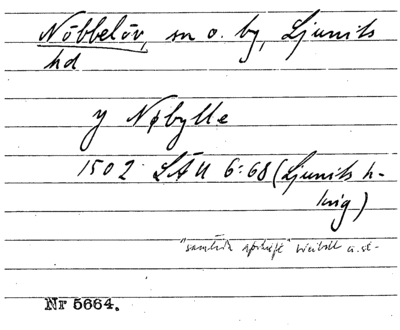 Nöbbelöv, sn o. by, Ljunits
hd
y Nøbylle
1502 LÄU 6:68 (Ljunits h-
ting)
"samtida avskrift" Weibull a.st.
Nr 5664.